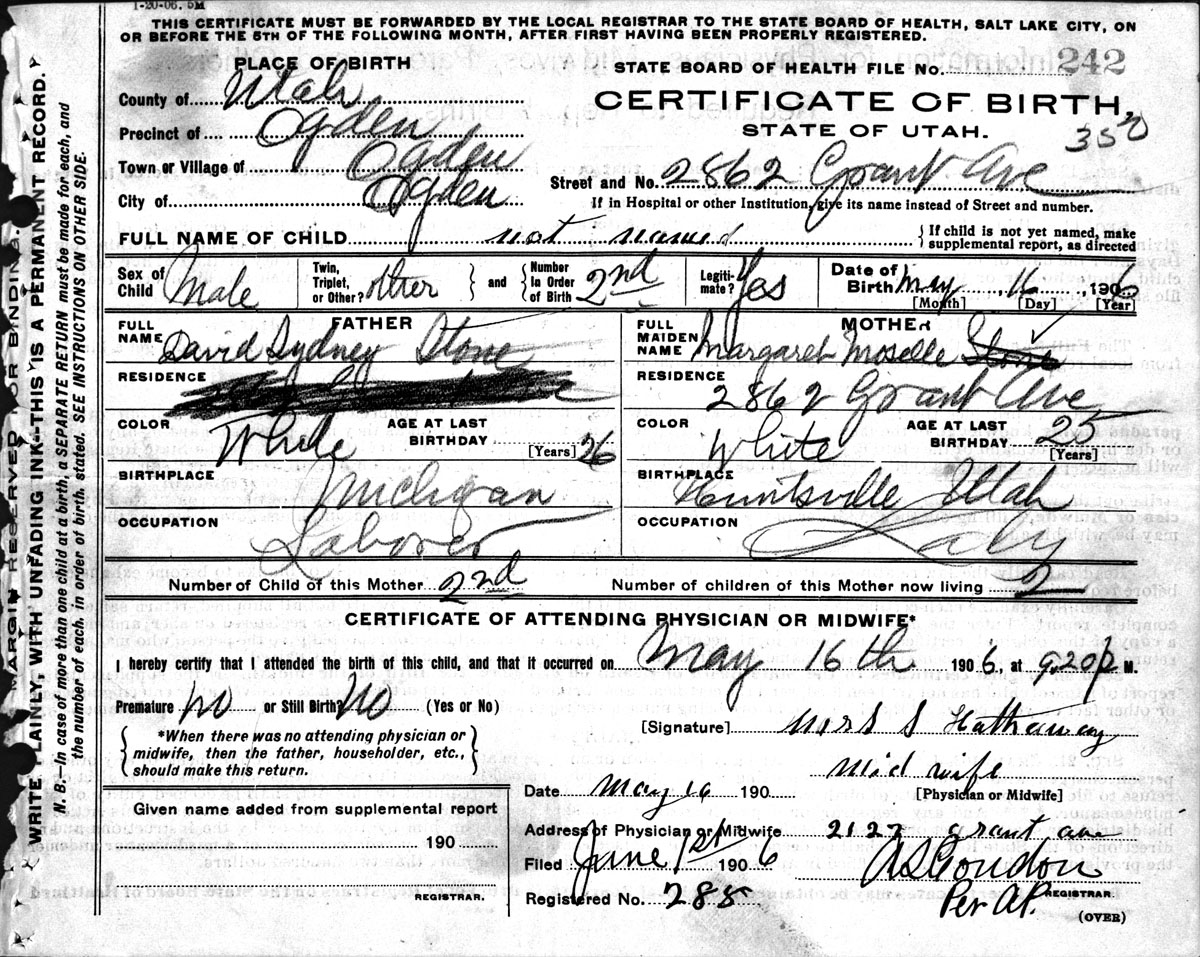 1-20-06. 5M
THIS CERTIFICATE MUST BE FORWARDED BY THE LOCAL REGISTRAR TO THE STATE BOARD OF HEALTH, SALT LAKE CITY, ON
OR BEFORE THE 5TH OF THE FOLLOWING MONTH, AFTER FIRST HAVING BEEN PROPERLY REGISTERED.
PLACE OF BIRTH
STATE BOARD OF HEALTH FILE No. 242
County of Utah
CERTIFICATE OF BIRTH,
Precinct of Ogden
STATE OF UTAH. 350
Town or Village of Ogden
Street and No. 2862 Grant Ave
City of Ogden
If in Hospital or other Institution, give its name instead of Street and number.
FULL NAME OF CHILD not named { If child is not yet named, make supplemental report, as directed
Sex of Child Male Twin, Triplet, or Other? other } and { Number In Order of Birth 2nd Legitimate? Yes Date of Birth May 16, 1906
[Month] [Day] [Year]
FATHER MOTHER
FULL NAME David Sydney Stone FULL MAIDEN NAME Margaret Moselle Stone
RESIDENCE RESIDENCE 2862 Grant Ave
COLOR White AGE AT LAST BIRTHDAY 26 [Years] COLOR White AGE AT LAST BIRTHDAY 25 [Years]
BIRTHPLACE Michigan BIRTHPLACE Huntsville Utah
OCCUPATION Laborer OCCUPATION Lady
Number of Child of this Mother 2nd Number of children of this Mother now living 2
CERTIFICATE OF ATTENDING PHYSICIAN OR MIDWIFE*
I hereby certify that I attended the birth of this child, and that it occurred on May 16th 1906, at 9.20 P M.
Premature No or Still Birth? No (Yes or No)
[Signature] Mors S Hathaway
*When there was no attending physician or
midwife, then the father, householder, etc.,
should make this return.
Mid wife
[Physician or Midwife]
Date May 16 190
Given name added from supplemental report
190
REGISTRAR.
Address of Physician or Midwife 2127 grant ave
Filed June 1st 1906 A S Condon
REGISTRAR.
Registered No. 288 Per A.P.
(OVER)
MARGIN RESERVED FOR BINDING.
WRITE PLAINLY, WITH UNFADING INK--THIS IS A PERMANENT RECORD.
N. B.—In case of more than one child at a birth, a SEPARATE RETURN must be made for each, and
the number of each, in order of birth, stated. SEE INSTRUCTIONS ON OTHER SIDE.